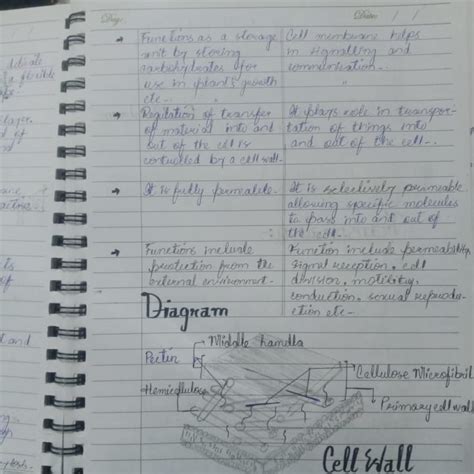 Day:
Date: / /
→ Functions as a storage
unit by storing
carbohydrates for
use in plant's growth
etc -
Cell membrane helps
in signalling and
communication. -
→ Regitation of transfer
of material into and
out of the cell is
controuled by a cell wall.
It plays role in transpor-
tation of things into
and out of the cell. -
→ It is fully permeable.
It is selectively permeable
allowing specific molecules
to pass into ant out of
the cell.
→ Functions include
protection from the
external environment.
Function include permeability,
signal reception, cell
division, motibility,
conduction, sexual reprodu-
ction etc -
Diagram
Middle hamella
Pectin
Cellulose Microfibril
Hemicellulose
Primary cell wall
Cell Wall